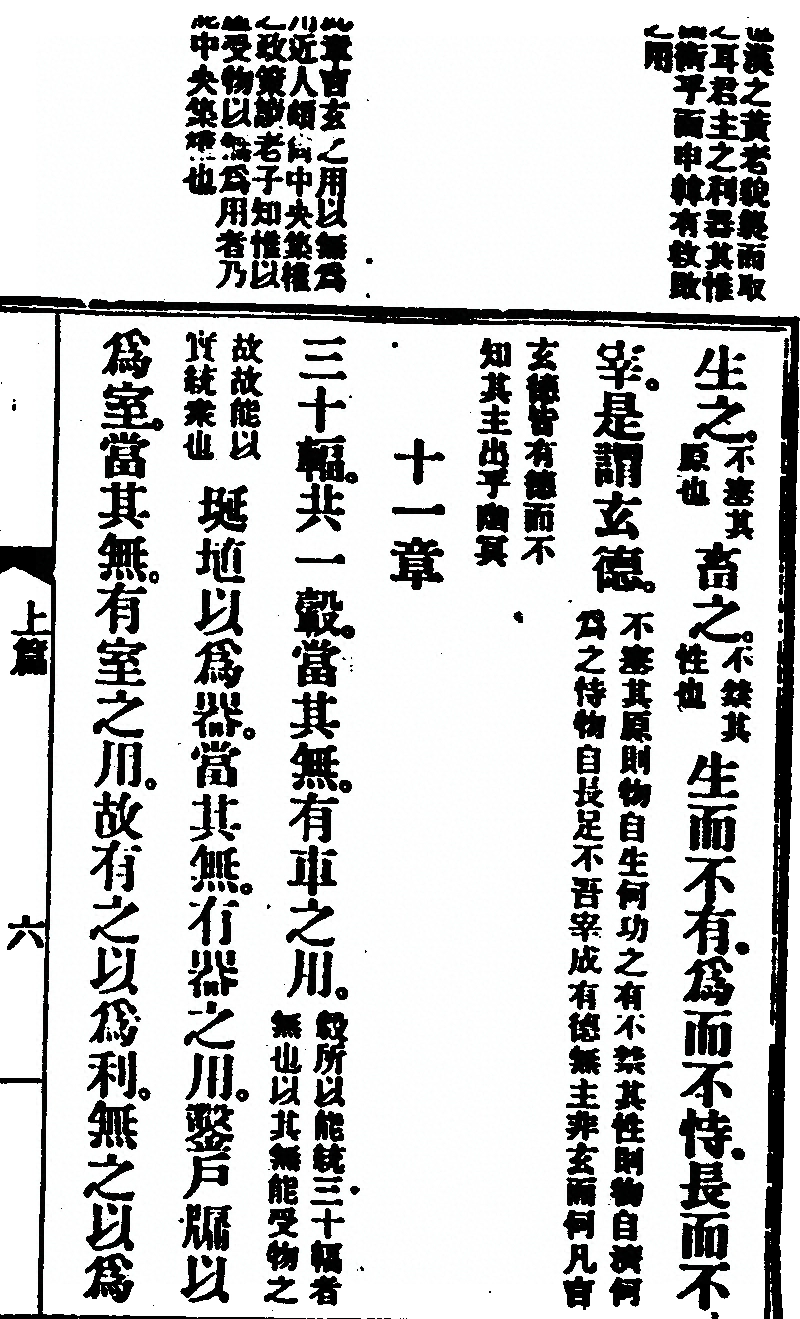 漢之黃老貌襲而取
耳君主之利器其惟
術乎而申韓有敎敗
之用
章言玄之用以無爲
近人頗尚中央集權
之政策謬老子知惟以
受物以無爲用者乃
中央集權也
生之。不塞其原也畜之。不禁其性也生而不有。爲而不恃。長而不
宰。是謂玄德。不塞其原則物自生何功之有不禁其性則物自濟何爲之恃物自長足不吾宰成有德無主非玄而何凡言
玄德皆有德而不知其主出乎幽冥
十一章
三十輻。共一轂。當其無。有車之用。轂所以能統三十輻者無也以其無能受物之
故故能以實統衆也埏埴以爲器。當其無。有器之用。鑿戶牖以
爲室。當其無。有室之用。故有之以爲利。無之以爲
上篇
六